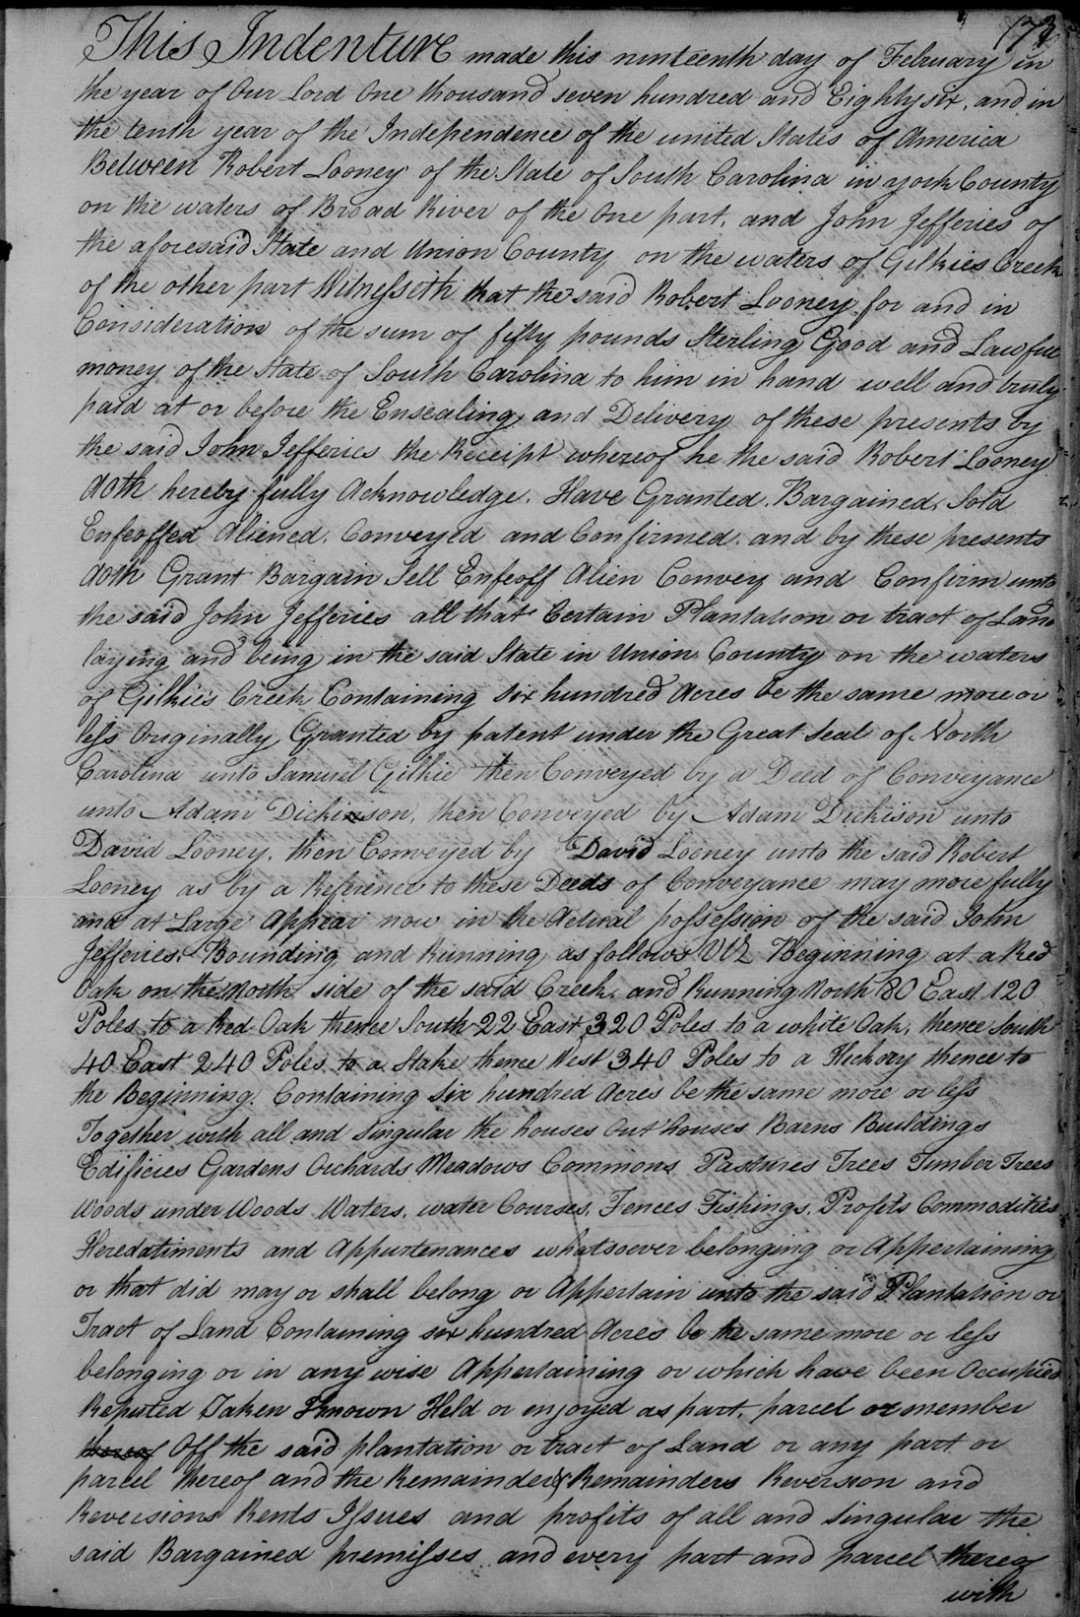 173
This Indenture made this ninteenth day of February in
the year of Our Lord One thousand seven hundred and Eighty six, and in
the tenth year of the Independence of the united States of America
Between Robert Looney of the State of South Carolina in york County
on the waters of Broad River of the One part, and John Jefferies of
the aforesaid State and Union County on the waters of Gilkies Creek
of the other part Witnesseth that the said Robert Looney for and in
Consideration of the sum of fifty pounds Sterling Good and Lawful
money of the State of South Carolina to him in hand well and truly
paid at or before the Ensealing and Delivery of these presents by
the said John Jefferies the Receipt whereof he the said Robert Looney
doth hereby fully Acknowledge. Have Granted. Bargained. Sold
Enfeoffed Aliened. Conveyed and Confirmed. and by these presents
doth Grant Bargain Sell Enfeoff Alien Convey and Confirm unto
the said John Jefferies all that Certain Plantation or tract of Land
laying and being in the said State in Union County on the waters
of Gilkies Creek Containing six hundred Acres be the same more or
less Originally Granted by patent under the Great Seal of North
Carolina unto Samuel Gilkie then Conveyed by a Deed of Conveyance
unto Adam Dickinson, then Conveyed by Adam Dickison unto
David Looney, then Conveyed by David Looney unto the said Robert
Looney as by a Reference to these Deeds of Conveyance may more fully
and at Large Appear now in the Actual possession of the said John
Jefferies. Bounding and Running as follows Viz Beginning at a Red
Oak on the North side of the said Creek, and Running North 80 East 120
Poles to a Red Oak thence South 22 East 320 Poles to a white Oak, thence South
40 East 240 Poles to a Stake thence West 340 Poles to a Hickory thence to
the Beginning. Containing six hundred Acres be the same more or less
Together with all and Singular the houses Out houses Barns Buildings
Edificies Gardens Orchards Meadows Commons Pastures Trees Timber Trees
Woods under Woods Waters, water Courses, Fences Fishings, Profits Commodities
Heredatiments and Appurtenances whatsoever belonging or Appertaining
or that did may or shall belong or Appertain unto the said Plantation or
Tract of Land Containing six hundred Acres be the same more or less
belonging or in any wise Appertaining or which have been Occupied
Reputed Taken Known Held or enjoyed as part, parcel or member
thereof Off the said plantation or tract of Land or any part or
parcel thereof and the Remainder & Remainders Reversion and
Reversions Rents Issues and profits of all and Singular the
said Bargained premisses and every part and parcel thereof
with